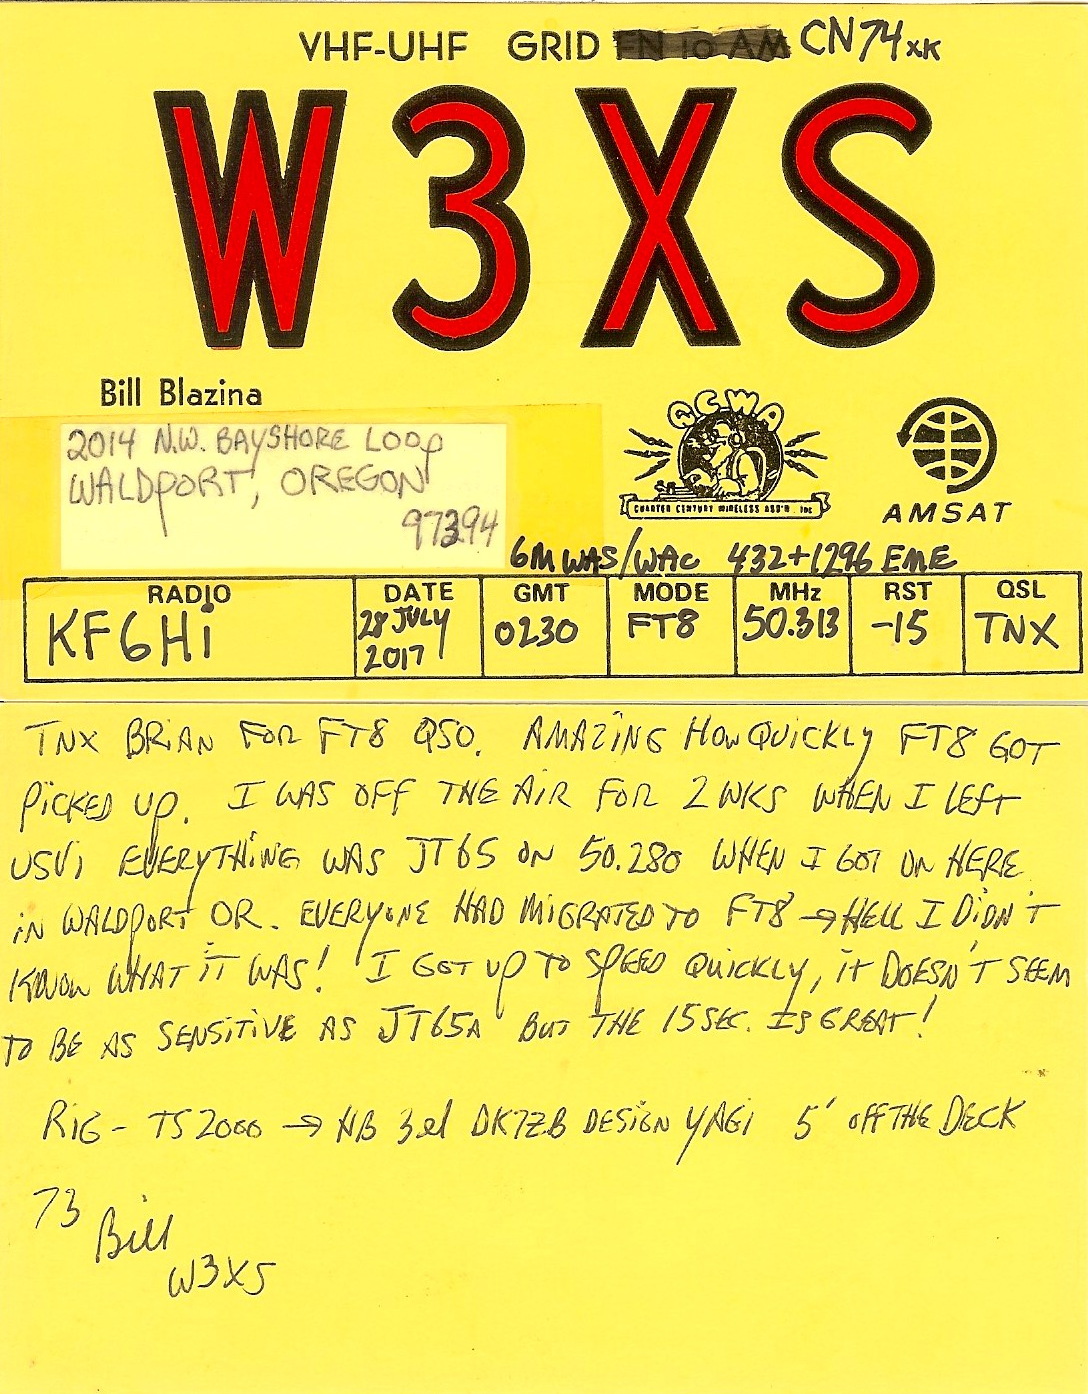 VHF-UHF GRID FN 10 AM CN74xK
W3XS
Bill Blazina
2014 N.W. BAYSHORE LOOP
WALDPORT, OREGON
97394
QCWA
QUARTER CENTURY WIRELESS ASS'N. INC
AMSAT
6M WAS/WAC 432+1296 EME
RADIO DATE GMT MODE MHz RST QSL
KF6Hi 28 JULY 2017 0230 FT8 50.313 -15 TNX
TNX BRIAN FOR FT8 QSO. AMAZING HOW QUICKLY FT8 GOT
PICKED UP. I WAS OFF THE AIR FOR 2 WKS WHEN I LEFT
USVI EVERYTHING WAS JT65 ON 50.280 WHEN I GOT ON HERE
IN WALDPORT OR. EVERYONE HAD MIGRATED TO FT8 → HELL I DIDN'T
KNOW WHAT IT WAS! I GOT UP TO SPEED QUICKLY, IT DOESN'T SEEM
TO BE AS SENSITIVE AS JT65A BUT THE 15 SEC. IS GREAT!
RIG - TS2000 → HB 3el DK7ZB DESIGN YAGI 5' OFF THE DECK
73 Bill
W3XS